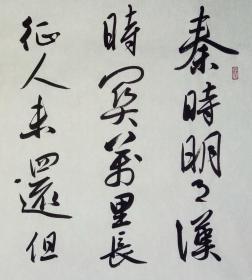 秦時明月漢
時関萬里長
征人未還但